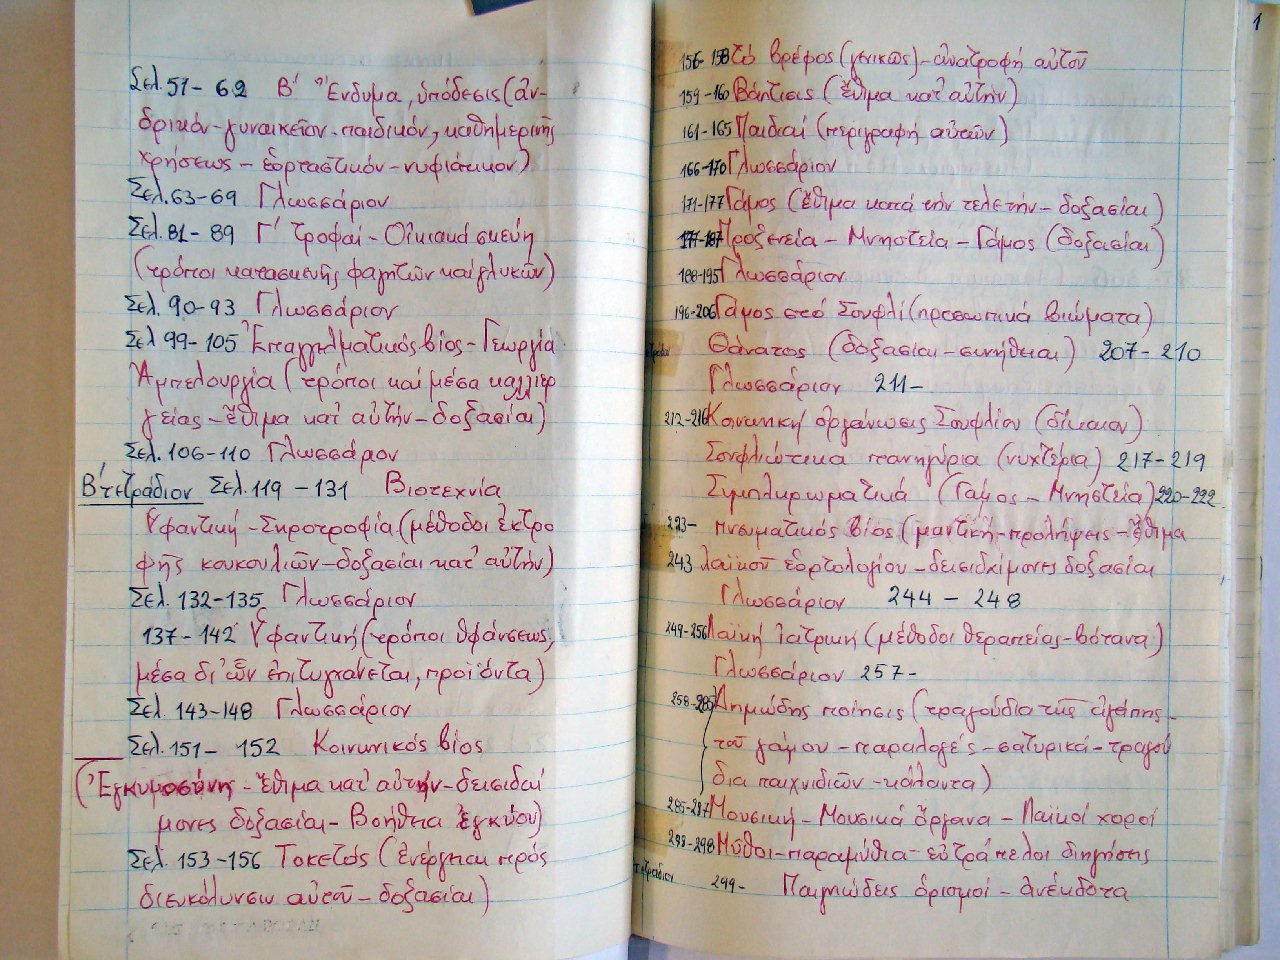 Σελ. 57 - 62 Β' Ἔνδυμα, ὑπόδεσις (ἀν-
δρικόν - γυναικεῖον - παιδικόν, καθημερινῆς
χρήσεως - ἑορταστικόν - νυφιάτικον)
Σελ. 63-69 Γλωσσάριον
Σελ. 81 - 89 Γ' Τροφαί - Οἰκιακά σκεύη
(τρόποι κατασκευῆς φαγητῶν καί γλυκῶν)
Σελ. 90-93 Γλωσσάριον
Σελ 99 - 105 Ἐπαγγελματικός βίος - Γεωργία
Ἀμπελουργία (τρόποι καί μέσα καλλιερ
γείας - ἔθιμα κατ' αὐτήν - δοξασίαι)
Σελ. 106-110 Γλωσσάριον
Β' τετράδιον Σελ. 119 - 131 Βιοτεχνία
Ὑφαντική - Σηροτροφία (μέθοδοι ἐκτρο
φῆς κουκουλιῶν - δοξασίαι κατ' αὐτήν)
Σελ. 132-135 Γλωσσάριον
137 - 142 Ὑφαντική (τρόποι ὑφάνσεως,
μέσα δι' ὧν ἐπιτυγχάνεται, προϊόντα)
Σελ. 143-148 Γλωσσάριον
Σελ. 151 - 152 Κοινωνικός βίος
(Ἐγκυμοσύνη - ἔθιμα κατ' αὐτήν - δεισιδαί
μονες δοξασίαι - Βοήθεια ἐγκύου)
Σελ. 153-156 Τοκετός (ἐνέργειαι πρός
διευκόλυνσιν αὐτοῦ - δοξασίαι)
1
156-158 Τό βρέφος (γενικῶς) - ἀνατροφή αὐτοῦ
159-160 Βάπτισις (ἔθιμα κατ' αὐτήν)
161-165 Παιδιαί (περιγραφή αὐτῶν)
166-170 Γλωσσάριον
171-177 Γάμος (ἔθιμα κατά τήν τελετήν - δοξασίαι)
177-187 Προξενεία - Μνηστεία - Γάμος (δοξασίαι)
188-195 Γλωσσάριον
196-206 Γάμος στό Σουφλί (προσωπικά βιώματα)
Θάνατος (δοξασίαι - συνήθειαι) 207 - 210
Γλωσσάριον 211 -
212-216 Κοινοτική ὀργάνωσις Σουφλίου (δίκαιον)
Σουφλιώτικα πανηγύρια (νυχτέρια) 217 - 219
Συμπληρωματικά (Γάμος - Μνηστεία) 220-222
223- πνευματικός βίος (μαντική - προλήψεις - ἔθιμα
243 λαϊκοῦ ἑορτολογίου - δεισιδαίμονες δοξασίαι
Γλωσσάριον 244 - 248
249-256 Λαϊκή ἰατρική (μέθοδοι θεραπείας - βότανα)
Γλωσσάριον 257 -
258-285 Δημώδης ποίησις (τραγούδια τῆς ἀγάπης -
τοῦ γάμου - παραλογές - σατυρικά - τραγού
δια παιχνιδιῶν - κάλαντα)
285-287 Μουσική - Μουσικά ὄργανα - Λαϊκοί χοροί
288-298 Μῦθοι - παραμύθια - εὐτράπελοι διηγήσεις
299- Παιγνιώδεις ὁρισμοί - ἀνέκδοτα